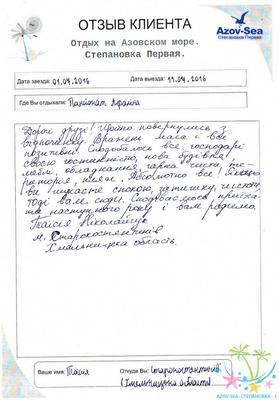 ОТЗЫВ КЛИЕНТА
Отдых на Азовском море.
Степановка Первая.
Azov-Sea
Степановка Первая
Дата заезда: 01.07.2016
Дата выезда: 11.07.2016
Где Вы отдыхали: Пансіонат Афаліна
Дорогі друзі! Щойно повернулись з
відпочинку. Вражень маса і все
позитивні. Сподобалось все: господарі
своєю гостинністю, нова будівля,
меблі, обладнання, гарна чиста те-
риторія, пляж. Абсолютно все! Якщо
ви шукаєте спокою, затишку, чистоти
тоді вам сюди. Сподіваємось приїха-
ти наступного року і вам радимо.
Таїсія Ніколайчук
м. Старокостянтинів
Хмельницька область.
Ваше имя: Таїсія
Откуда Вы: Старокостянтинів
(Хмельницька область)
AZOV-SEA СТЕПАНОВКА 1